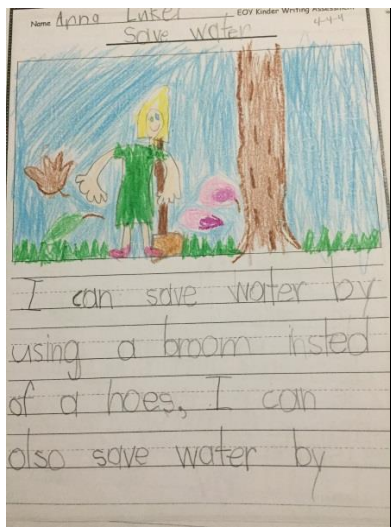 Name Anna Enkel EOY Kinder Writing Assessment
4-4-4
Save water
I can save water by
using a broom insted
of a hoes, I can
also save water by